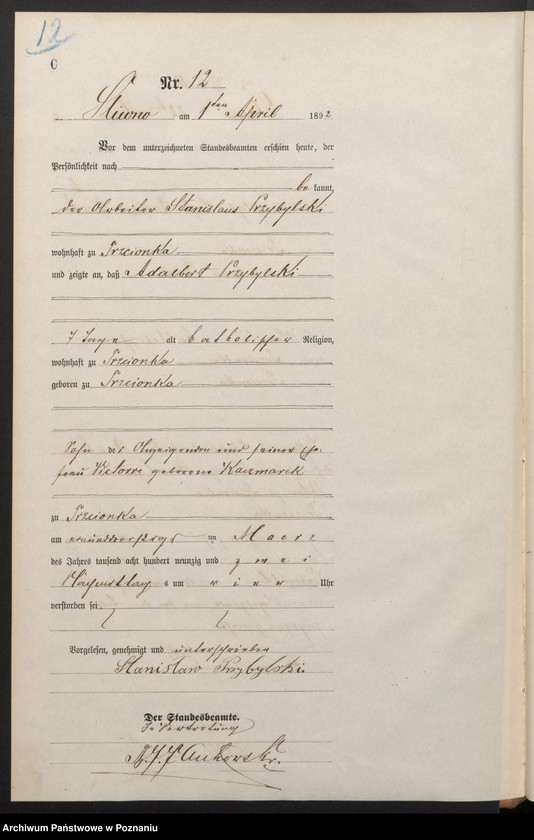 12
C
Nr. 12
am 1ten April 1892
Vor dem unterzeichneten Standesbeamten erschien heute, der
Persönlichkeit nach
be kannt,
der Arbeiter Stanislaus Przybylski
wohnhaft zu Trzcionka
und zeigte an, daß Adalbert Przybylski
7 Tage alt katholischer Religion,
wohnhaft zu Trzcionka
geboren zu Trzcionka
Sohn des Anzeigenden und seiner Ehe-
frau geborene Kaczmarek
zu Trzcionka
am im Maerz
des Jahres tausend acht hundert neunzig und zwei
Nachmittags um vier Uhr
verstorben sei.
Vorgelesen, genehmigt und unterschrieben
Stanisław Przybylski.
Der Standesbeamte.
In Vertretung
Archiwum Państwowe w Poznaniu